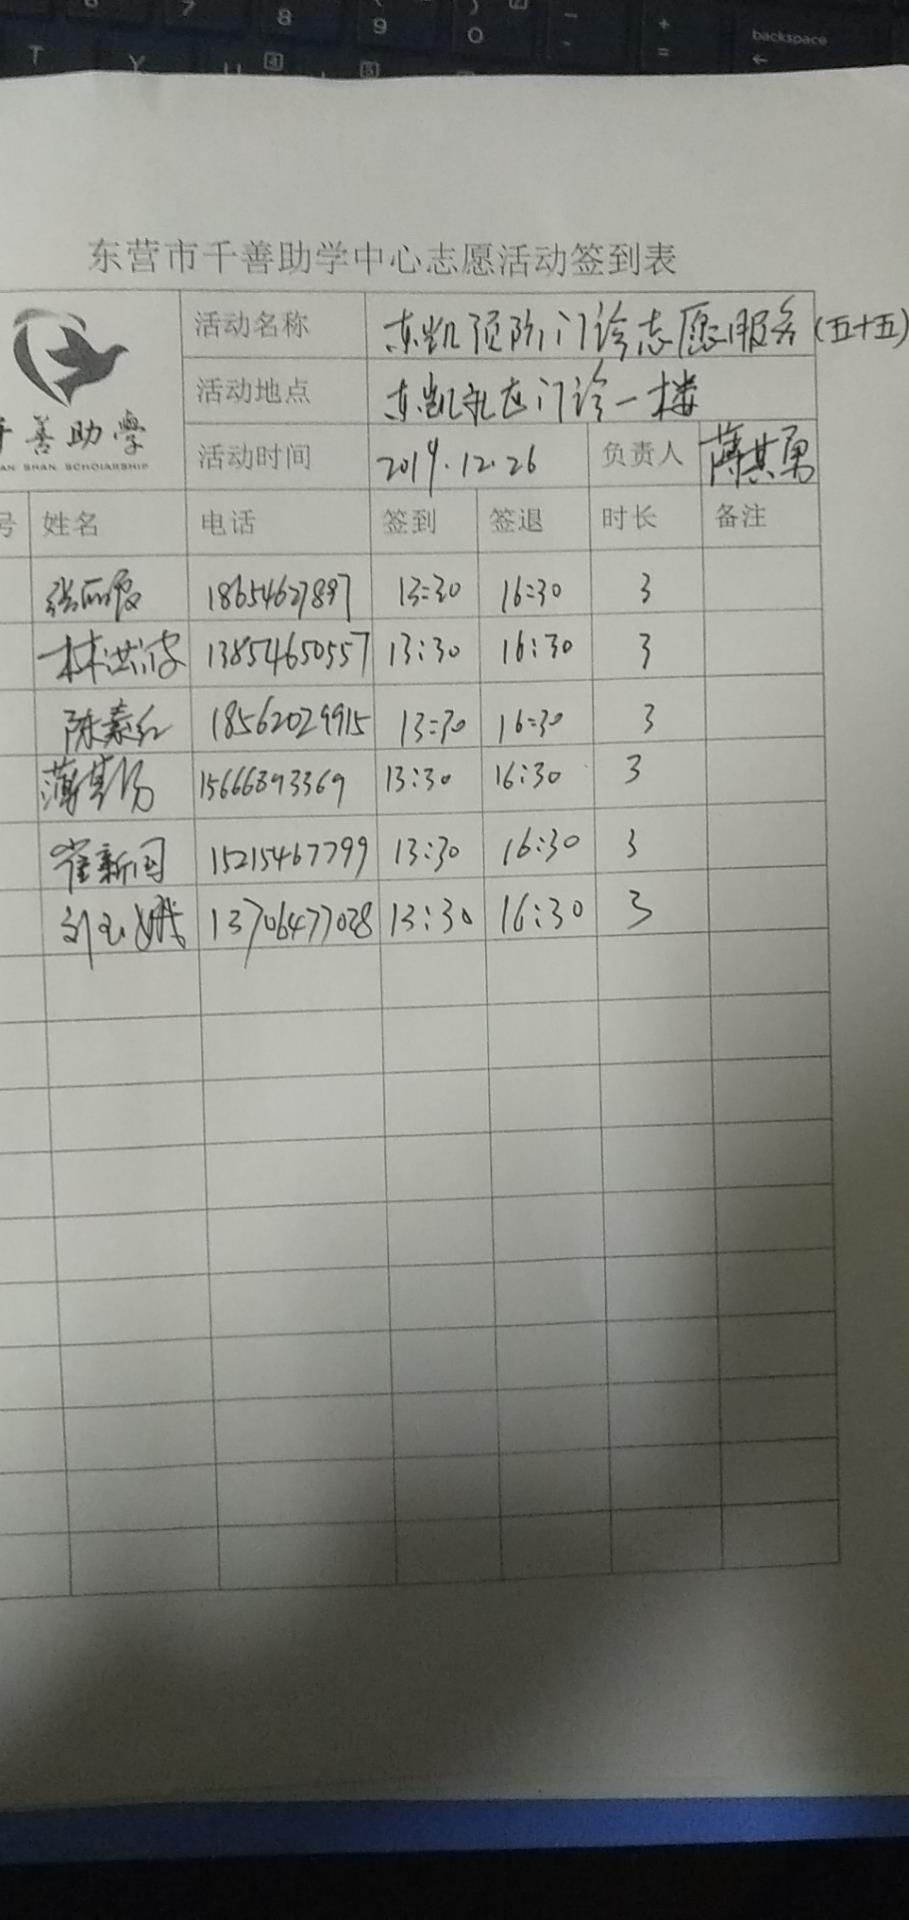 6 7 8 9 ) 0 - + =
backspace
T Y U
东营市千善助学中心志愿活动签到表
善助學
AN SHAN SCHOLARSHIP
活动名称 东凯预防门诊志愿服务(五十五)
活动地点 东凯社区门诊一楼
活动时间 2019.12.26 负责人 薄其勇
号 姓名 电话 签到 签退 时长 备注
张丽霞 18654627897 13:30 16:30 3
林洪波 13854650557 13:30 16:30 3
陈素红 18562029915 13:30 16:30 3
15666893369 13:30 16:30 3
崔新国 15215467799 13:30 16:30 3
刘玉娥 13706477028 13:30 16:30 3